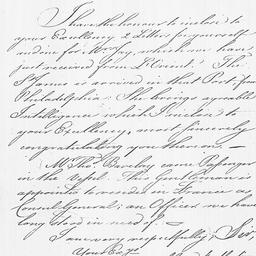 I have the honour to inclose to
your Excellency 2 Letters for yourself
and one for Mr Jay, which we have
just received from L'Orient. The
St James is arrived in that Port from
Philadelphia. She brings agreable
Intelligence which I inclose to
your Excellency, most sincerely
congratulating you thereon.—
Mr Thos. Barclay came Passenger
in the Vessel. This Gentleman is
appointed to reside in France as
Consul General; an Officer we have
long stood in need of.—
I am very respectfully, Sir,
Your Exc'y